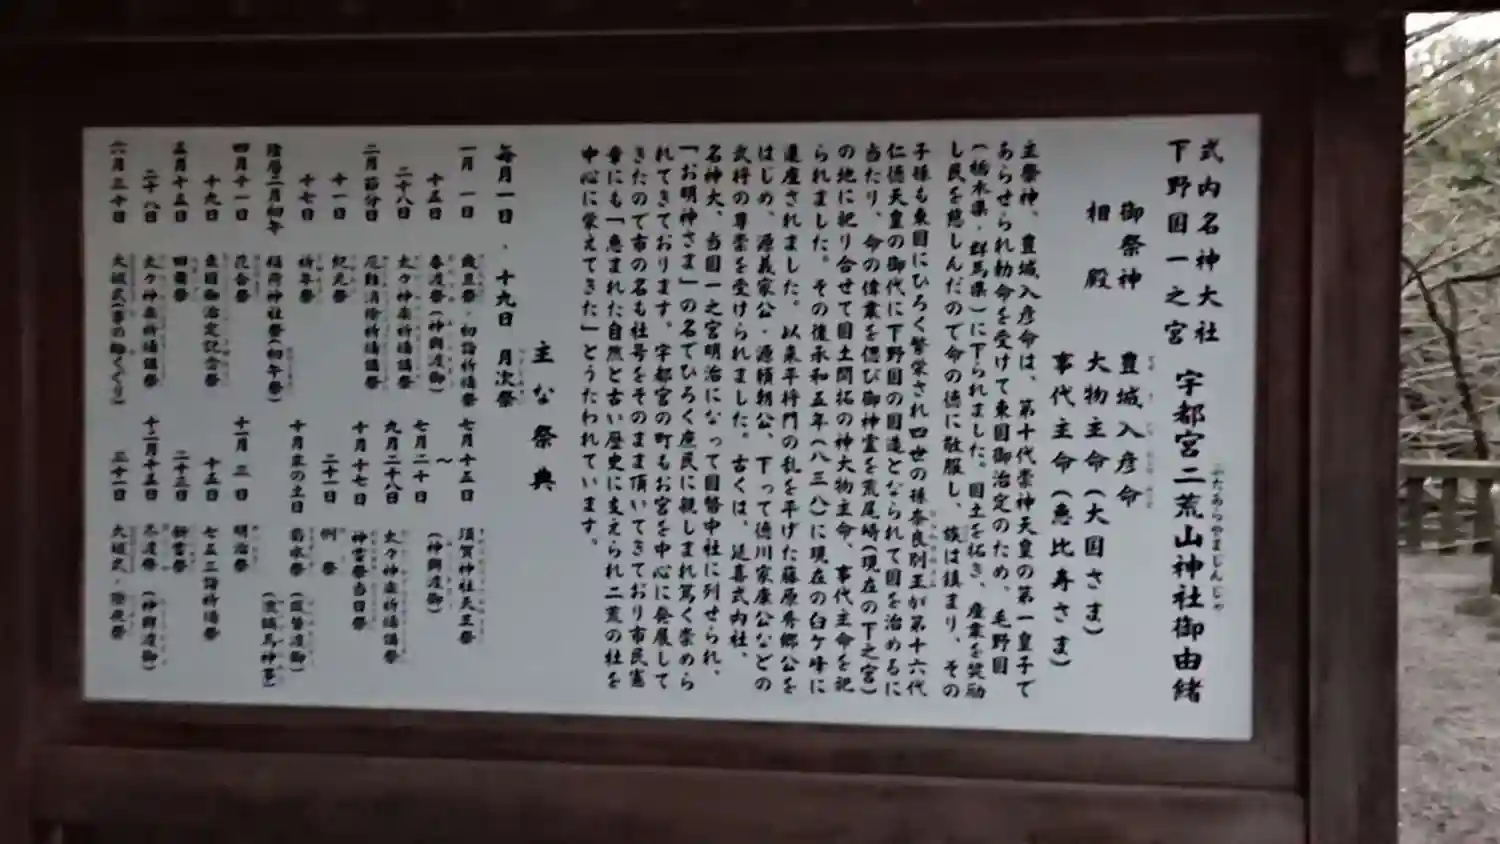 式内名神大社
下野国一之宮
宇都宮二荒山神社御由緒
ふたあらやまじんじゃ
御祭神 豊城入彦命
相殿 大物主命(大国さま)
事代主命(恵比寿さま)
主祭神、豊城入彦命は、第十代崇神天皇の第一皇子で
あらせられ勅命を受けて東国御治定のため、毛野国
(栃木県・群馬県)に下られました。国土を拓き、産業を奨励
し民を慈しんだので命の徳に敬服し、族は鎮まり、その
子様も東国にひろく繁栄され四世の孫奈良別王が第十六代
仁徳天皇の御代に下野国の国造となられて国を治めるに
当たり、命の偉業を偲び御神霊を荒尾崎(現在の下之宮)
の地に祀り合せて国土開拓の神大物主命、事代主命を祀
られました。その後承和五年(八三八)に現在の臼ケ峰に
遷座されました。以来平将門の乱を平げた藤原秀郷公を
はじめ、源義家公・源頼朝公、下って徳川家康公などの
武将の尊崇を受けられました。古くは、延喜式内社、
名神大、当国一之宮明治になって国幣中社に列せられ、
「お明神さま」の名でひろく庶民に親しまれ篤く崇めら
れてきております。宇都宮の町もお宮を中心に発展して
きたので市の名も社号をそのまま頂いてきており市民憲
章にも「恵まれた自然と古い歴史に支えられ二荒の杜を
中心に栄えてきた」とうたわれています。
主な祭典
毎月一日・十九日 月次祭
一月一日 歳旦祭・初詣祈禱祭
十五日 春渡祭(神輿渡御)
二十八日 太々神楽祈禱講祭
二月節分日 厄難消除祈禱講祭
十一日 紀元祭
十七日 祈年祭
陰暦二月初午 稲荷神社祭(初午祭)
四月十一日 花会祭
十九日 東国御治定記念祭
五月十五日 田舞祭
二十八日 太々神楽祈禱講祭
六月三十日 大祓式(茅の輪くぐり)
七月十五日 須賀神社天王祭
〜
七月二十日 (神輿渡御)
九月二十八日 太々神楽祈禱講祭
十月十七日 神嘗祭当日祭
二十一日 例祭
十月末の土日 菊水祭(鳳輦渡御)
(流鏑馬神事)
十一月三日 明治祭
十五日 七五三詣祈禱祭
二十三日 新嘗祭
十二月十五日 冬渡祭(神輿渡御)
三十一日 大祓式・除夜祭